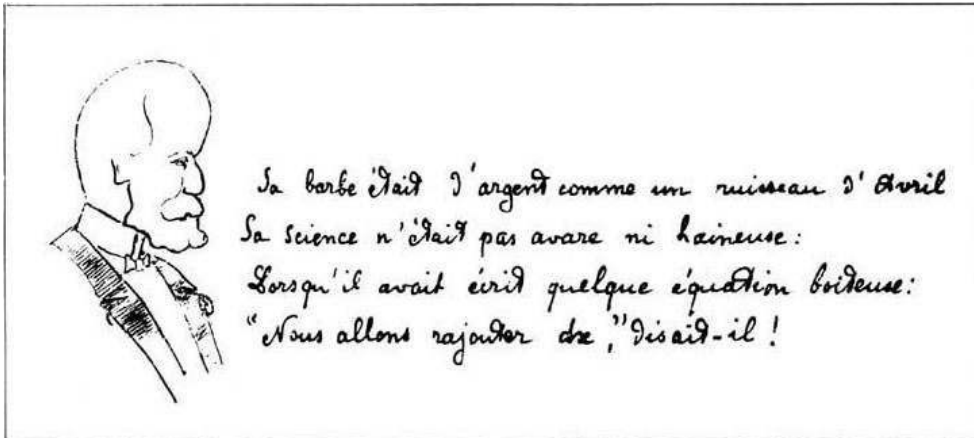 Sa barbe était d'argent comme un ruisseau d'Avril
Sa Science n'était pas avare ni haineuse:
Lorsqu'il avait écrit quelque équation boiteuse:
"Nous allons rajouter dx," disait-il!